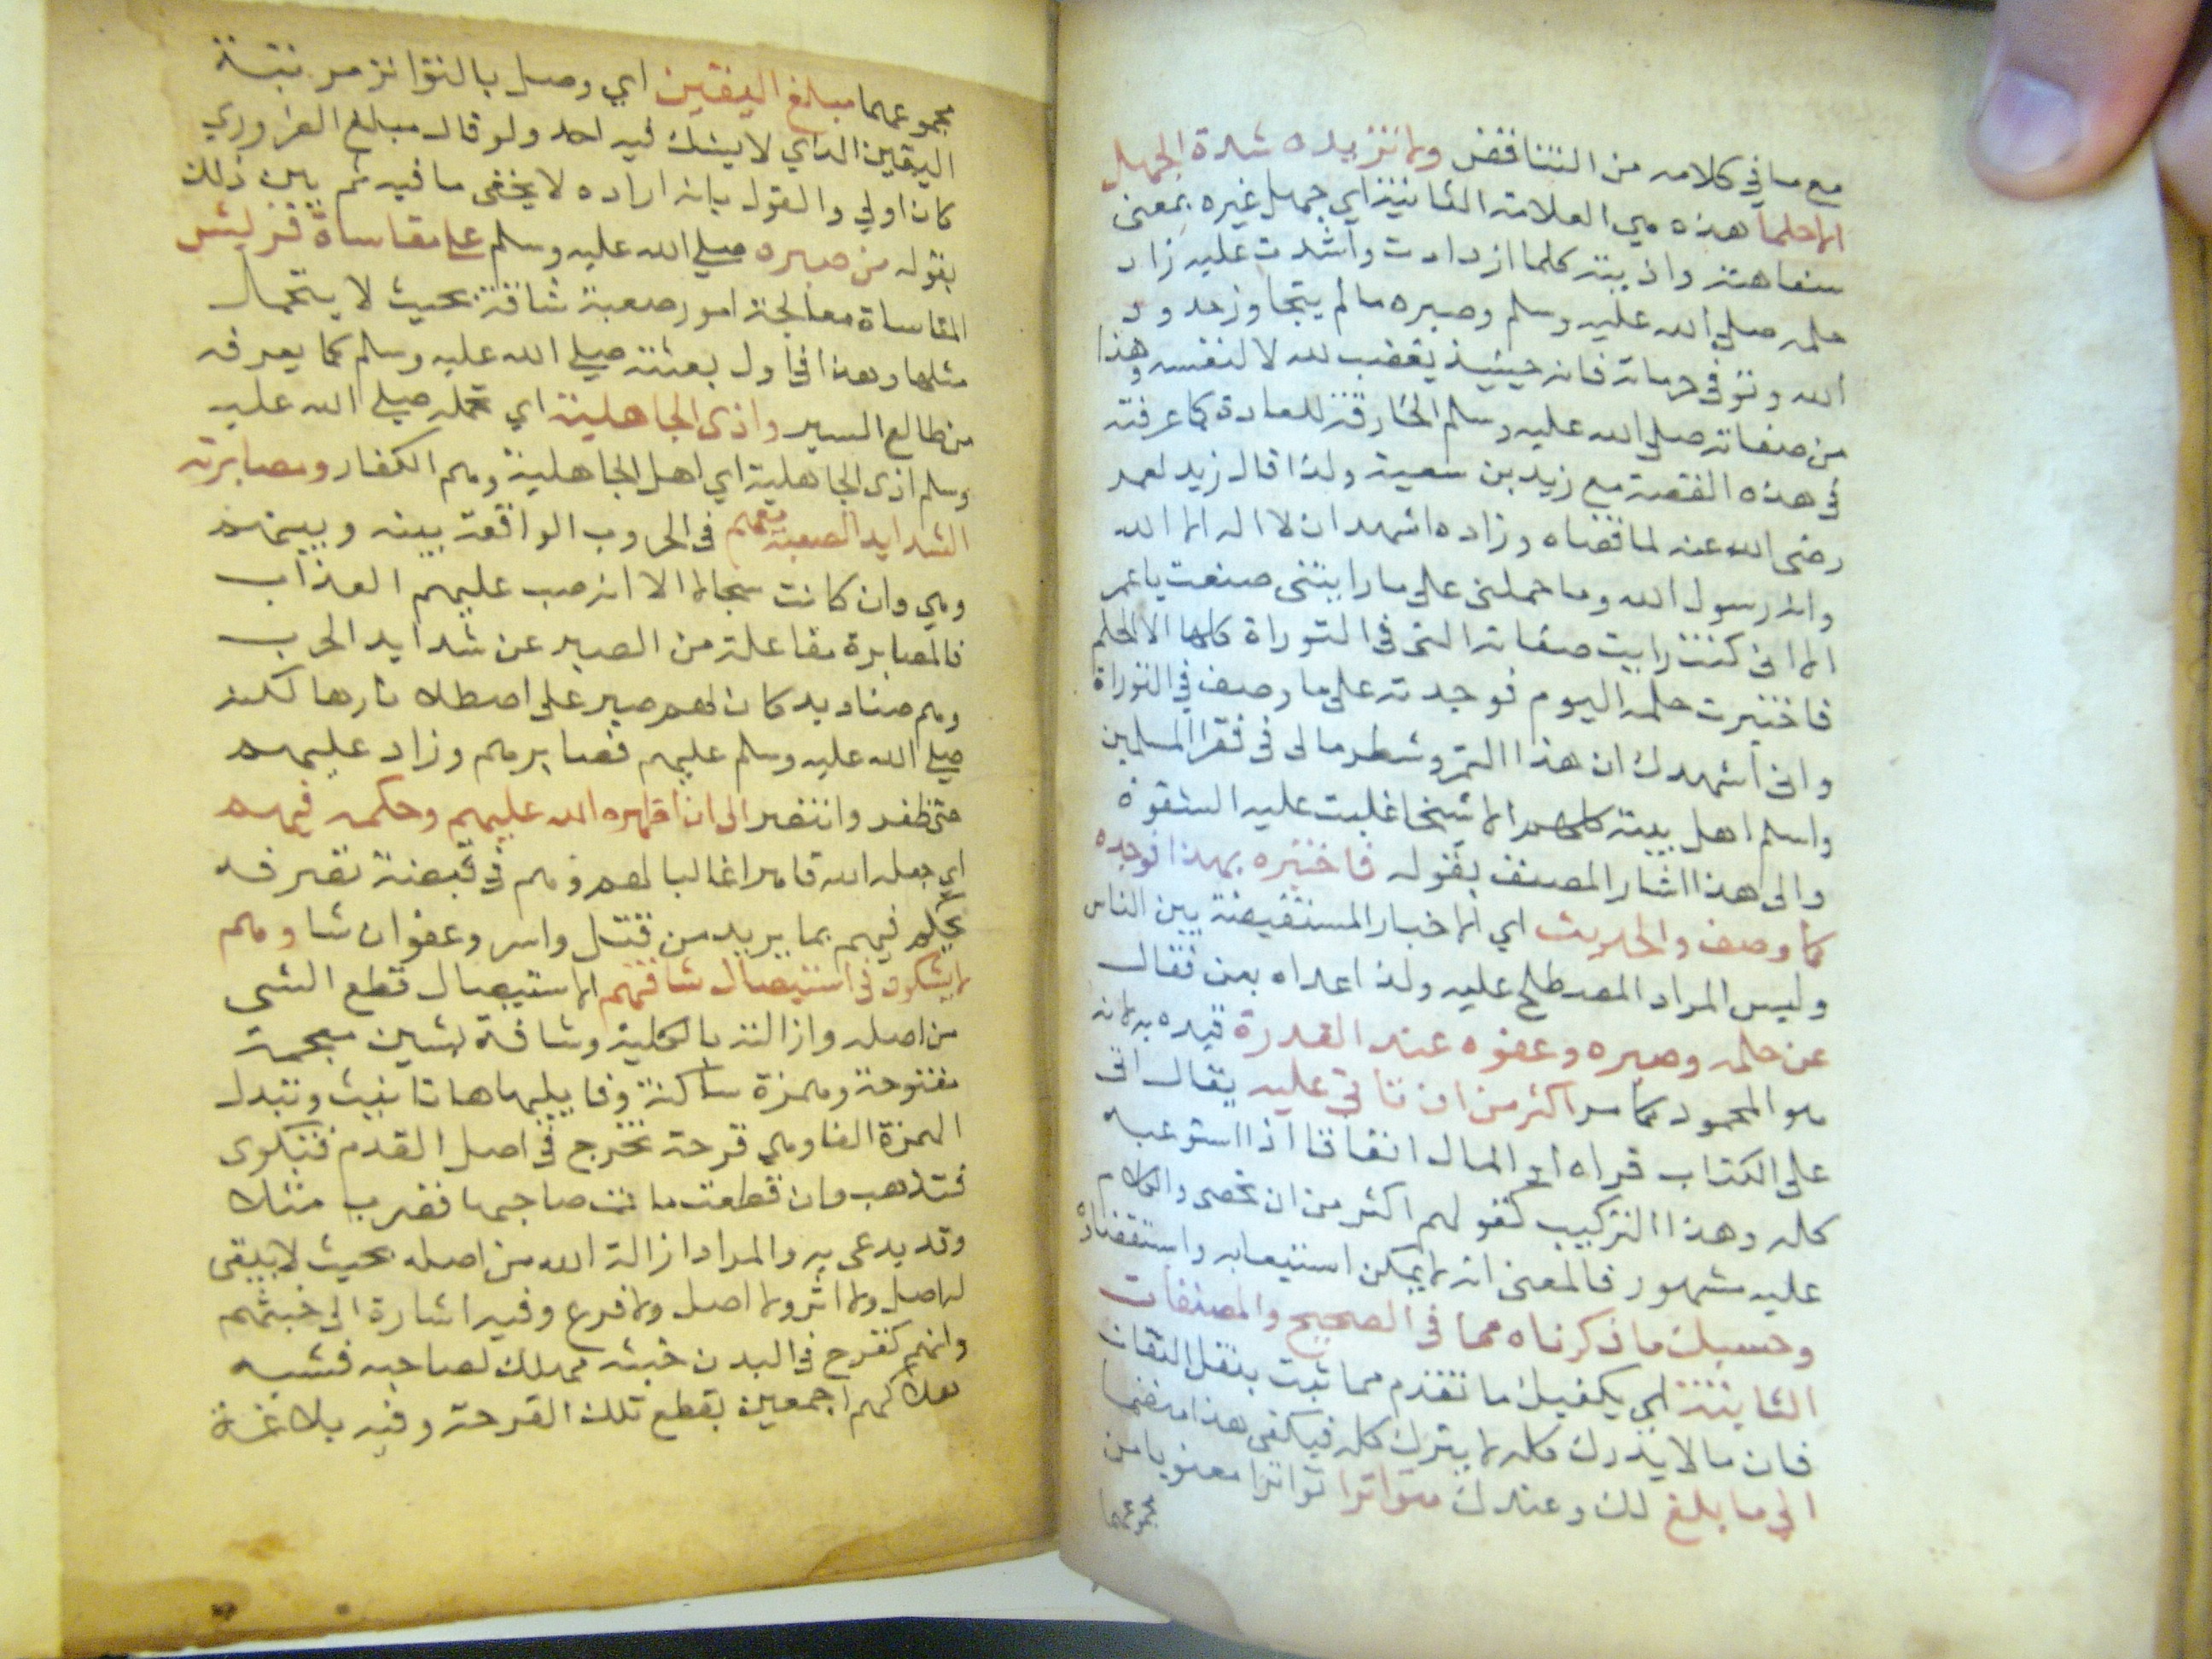 مع ما في كلامه من التناقض ولا تزيده شدة الجهل
الا حلما هذه هي العلامة الثانية اي جهل غيره بمعنى
سفاهته واذيته كلما ازدادت واشتدت عليه زاد
حلمه صلى الله عليه وسلم وصبره ما لم يتجاوز حدود
الله وتوفي حرماته فانه حينيذ يغضب لله لا لنفسه وهذا
من صفاته صلى الله عليه وسلم الخارقة للعادة كما عرفته
في هذه القصة مع زيد بن سعية ولذا قال زيد لعمر
رضى الله عنه لما قضاه وزاده اشهد ان لا اله الا الله
وانه رسول الله وما حملنى على ما رايتنى صنعت يا عمر
الا انى كنت رايت صفاته التى فى التوراة كلها الا الحلم
فاختبرت حلمه اليوم فوجدته على ما وصف في التوراة
وانى اشهدك ان هذا التمر وشطر مالى فى فقرا المسلمين
واسلم اهل بيته كلهم الا شيخا غلبت عليه الشقوة
والى هذا اشار المصنف بقوله فاختبره بهذا فوجده
كما وصف والحديث اي الاخبار المستفيضة بين الناس
وليس المراد المصطلح عليه ولذا عداه بعن فقال
عن حلمه وصبره وعفوه عند القدرة قيده به لانه
هو المحمود كما مر اكثر من ان ناتي عليه يقال اتى
على الكتاب قراه او المال انفاقا اذا استوعبه
كله وهذا التركيب كقولهم اكثر من ان تحصى والكلام
عليه مشهور فالمعنى انه لا يمكن استيعابه واستقصاوه
وحسبك ما ذكرناه مما فى الصحيح والمصنفات
الثابتة اي يكفيك ما تقدم مما ثبت بنقل الثقات
فان ما لا يدرك كله لا يترك كله فيكفى هذا منضما
الى ما بلغ لك وعندك متواترا تواترا معنويا من
مجموعها
مجموعها مبلغ اليقين اي وصل بالتواتر مرتبة
اليقين الذي لا يشك فيه احد ولو قال مبلغ الضروري
كان اولى والقول بانه اراده لا يخفى ما فيه ثم بين ذلك
بقوله من صبره صلى الله عليه وسلم على مقاساة قريش
المقاساة معالجة امور صعبة شاقة بحيث لا يتحمل
مثلها وهذا في اول بعثته صلى الله عليه وسلم كما يعرفه
من طالع السير واذى الجاهلية اي تحمله صلى الله عليه
وسلم اذى الجاهلية اي اهل الجاهلية وهم الكفار ومصابرته
الشدايد الصعبة معهم فى الحروب الواقعة بينه وبينهم
وهي وان كانت سجالا الا انه صب عليهم العذاب
فالمصابرة مفاعلة من الصبر عن شدايد الحرب
وهم صناديد كان لهم صبر على اصطلاء نارها لكنه
صلى الله عليه وسلم عليهم فصابرهم وزاد عليهم
حتى ظفر وانتصر الى ان اظهره الله عليهم وحكمه فيهم
اي جعله الله قاهرا غالبا لهم وهم في قبضة تصرفه
يحكم فيهم بما يريد من قتل واسر وعفو ان شا وهم
لا يشكون فى استيصال شافتهم الاستيصال قطع الشى
من اصله وازالته بالكلية وشافة بشين معجمة
مفتوحة وهمزة ساكنة وفا يليها ها تانيث وتبدل
الهمزة الفا وهي قرحة تخرج في اصل القدم فتكوى
فتذهب وان قطعت مات صاحبها فضرب مثلا
وقد يدعى به والمراد ازالة الله من اصله بحيث لا يبقى
له اصل ولا اثر ولا اصل ولا فرع وفيه اشارة الى خبثهم
وانهم كقرح فى البدن خبثه مهلك لصاحبه فشبه
هلاكهم اجمعين بقطع تلك القرحة وفيه بلاغة